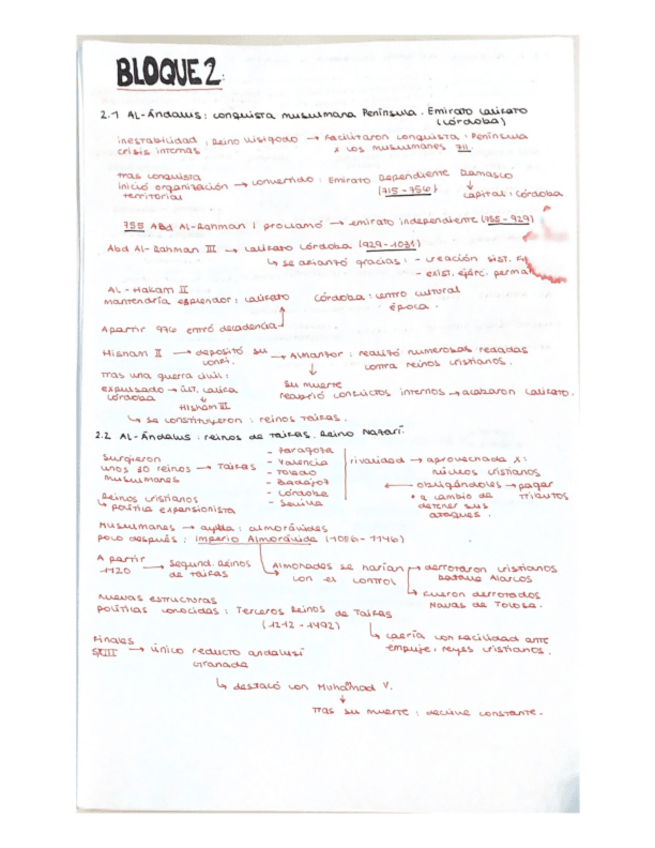 BLOQUE 2:
2.1 AL-Ándalus: conquista musulmana Península. Emirato califato
(Córdoba)
inestabilidad : Reino visigodo → Facilitaron conquista : Península
crisis internas x los musulmanes 711.
tras conquista
inició organización → convertido : Emirato Dependiente Damasco
territorial (715-756) ↓
capital : Córdoba
755 Abd Al-Rahman I proclamó → emirato independiente (755-929)
Abd Al-Rahman III → califato Córdoba (929-1031)
↳ se afianzó gracias : - creación sist.
- exist. ejérc.
AL-Hakam II
mantendría esplendor : califato Córdoba : centro cultural
época.
A partir 976 entró decadencia
Hisham II → depositó su → Almanzor : realizó numerosas
confi. ↓ contra reinos cristianos.
Tras una guerra civil :
expulsado → últ. califa su muerte
Córdoba reabrió conflictos internos → acabaron califato.
↓
Hisham III
↳ se constituyeron : reinos taifas.
2.2 AL-Ándalus : reinos de taifas. Reino Nazarí.
Surgieron
unos 30 reinos → Taifas
musulmanes
- Zaragoza
- Valencia
- Toledo
- Badajoz
- Córdoba
- Sevilla
rivalidad → aprovechada x :
núcleos cristianos
← obligándoles → pagar
• a cambio de tributos
detener sus
ataques.
Reinos cristianos
↳ política expansionista
Musulmanes → ayuda : almorávides
poco después : Imperio Almorávide (1086-1146)
A partir
1120 → Segund. Reinos
de taifas
Almohades se harían
con el control
→ derrotaron cristianos
Alarcos
↳ fueron derrotados
Navas de Tolosa.
Nuevas estructuras
políticas conocidas : Terceros Reinos de Taifas
(1212-1492)
↳ caería con facilidad ante
empuje : reyes cristianos.
Finales
SXIII → único reducto andalusí
Granada
↳ destacó con Muhamad V.
↓
tras su muerte : declive constante.